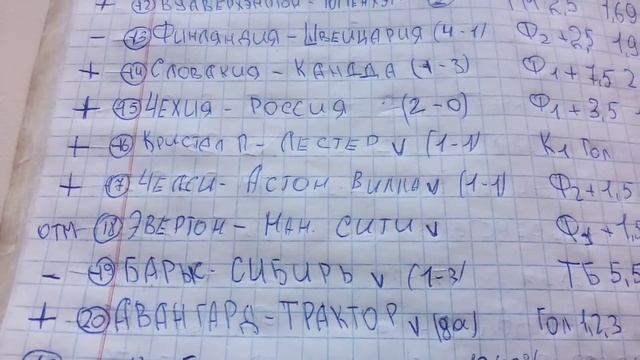 - 13 ФИНЛЯНДИЯ - ШВЕЙЦАРИЯ (4-1) Ф2 + 2,5 1,9
+ 14 СЛОВАКИЯ - КАНАДА (1-3) Ф1 + 7,5 2
+ 15 ЧЕХИЯ - РОССИЯ (2-0) Ф1 + 3,5
+ 16 КРИСТАЛ П - ЛЕСТЕР V (1-1) К1 ГОЛ
+ 17 ЧЕЛСИ - АСТОН ВИЛЛА V (1-1) Ф2 + 1,5
ОТМ - 18 ЭВЕРТОН - МАН. СИТИ V Ф1 + 1,5
- 19 БАРЫС - СИБИРЬ V (1-3) ТБ 5,5
+ 20 АВАНГАРД - ТРАКТОР V (да) ГОЛ 1,2,3